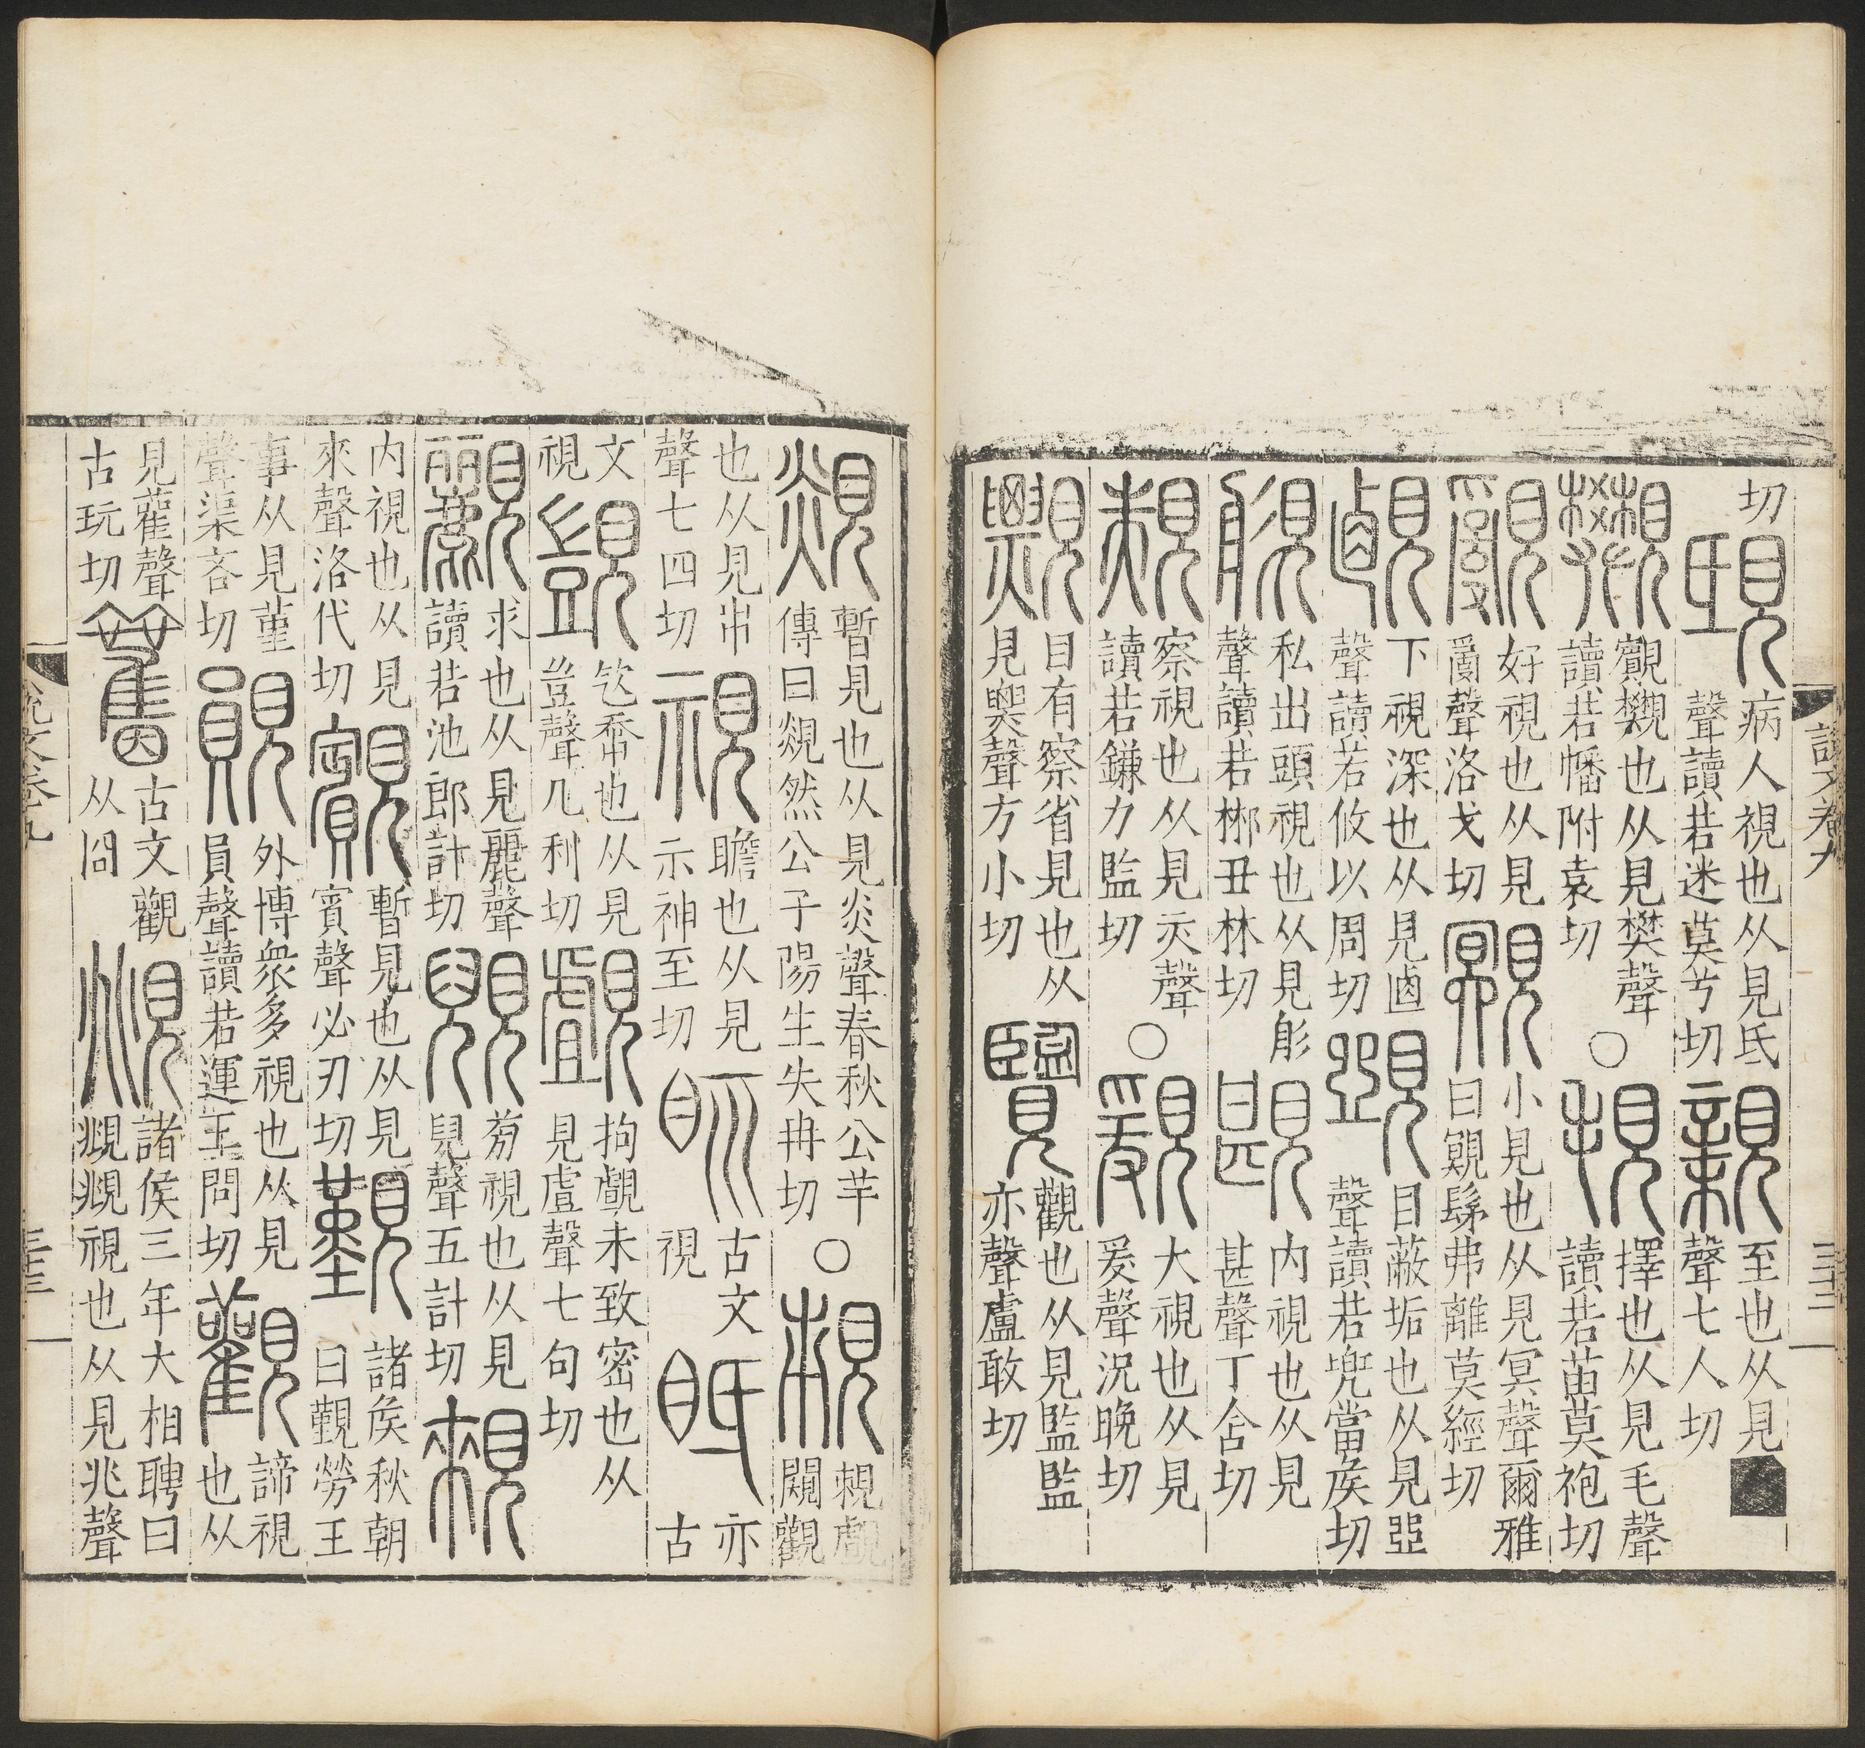 切
病人視也从見氐聲讀若迷莫兮切
親
至也从見聲七人切
觀也从見樊聲讀若幡附袁切
○
覒
擇也从見毛聲讀若苗莫袍切
覶
好視也从見𤔔聲洛戈切
覭
小見也从見冥聲爾雅曰覭髳弗離莫經切
下視深也从見卤聲讀若攸以周切
目蔽垢也从見聲讀若兜當矦切
私出頭視也从見肜聲讀若郴丑林切
內視也从見甚聲丁含切
覝
察視也从見聲讀若鎌力監切
○
大視也从見爰聲況晚切
目有察省見也从見聲方小切
覽
觀也从見監監亦聲盧敢切
說文卷九
三十三
覢
暫見也从見炎聲春秋公羊傳曰覢然公子陽生失冉切
○
覷闚觀
也从見聲七四切
視
瞻也从見示神至切
𥄙
古文視
眡
亦古
文視
覬
也从見豈聲几利切
覰
拘覰未致密也从見虘聲七句切
求也从見麗聲讀若池郎計切
旁視也从見兒聲五計切
內視也从見來聲洛代切
暫見也从見賓聲必刃切
覲
諸矦秋朝曰覲勞王
事从見堇聲渠吝切
䚋
外博衆多視也从見員聲讀若運王問切
觀
諦視也从
見雚聲古玩切
古文觀从囧
覜
諸侯三年大相聘曰覜覜視也从見兆聲
說文卷九
三十三